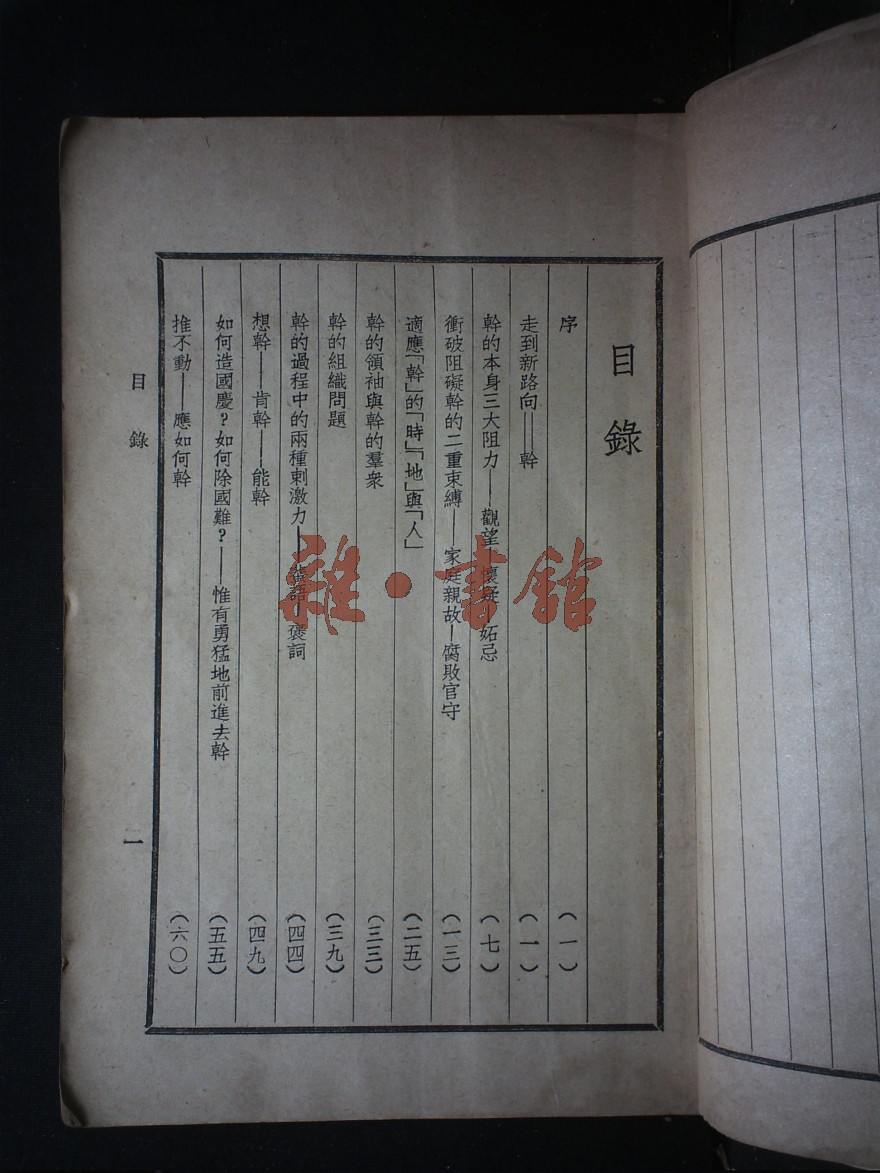 目錄
序 (一)
走到新路向——幹 (一)
幹的本身三大阻力——觀望—懷疑—妬忌 (七)
衝破阻礙幹的二重束縛——家庭親故—腐敗官守 (一三)
適應「幹」的「時」「地」與「人」 (二五)
幹的領袖與幹的羣衆 (三三)
幹的組織問題 (三九)
幹的過程中的兩種刺激力——語—褒詞 (四四)
想幹——肯幹——能幹 (四九)
如何造國慶？如何除國難？——惟有勇猛地前進去幹 (五五)
推不動——應如何幹 (六〇)
目錄
一
雜·書館